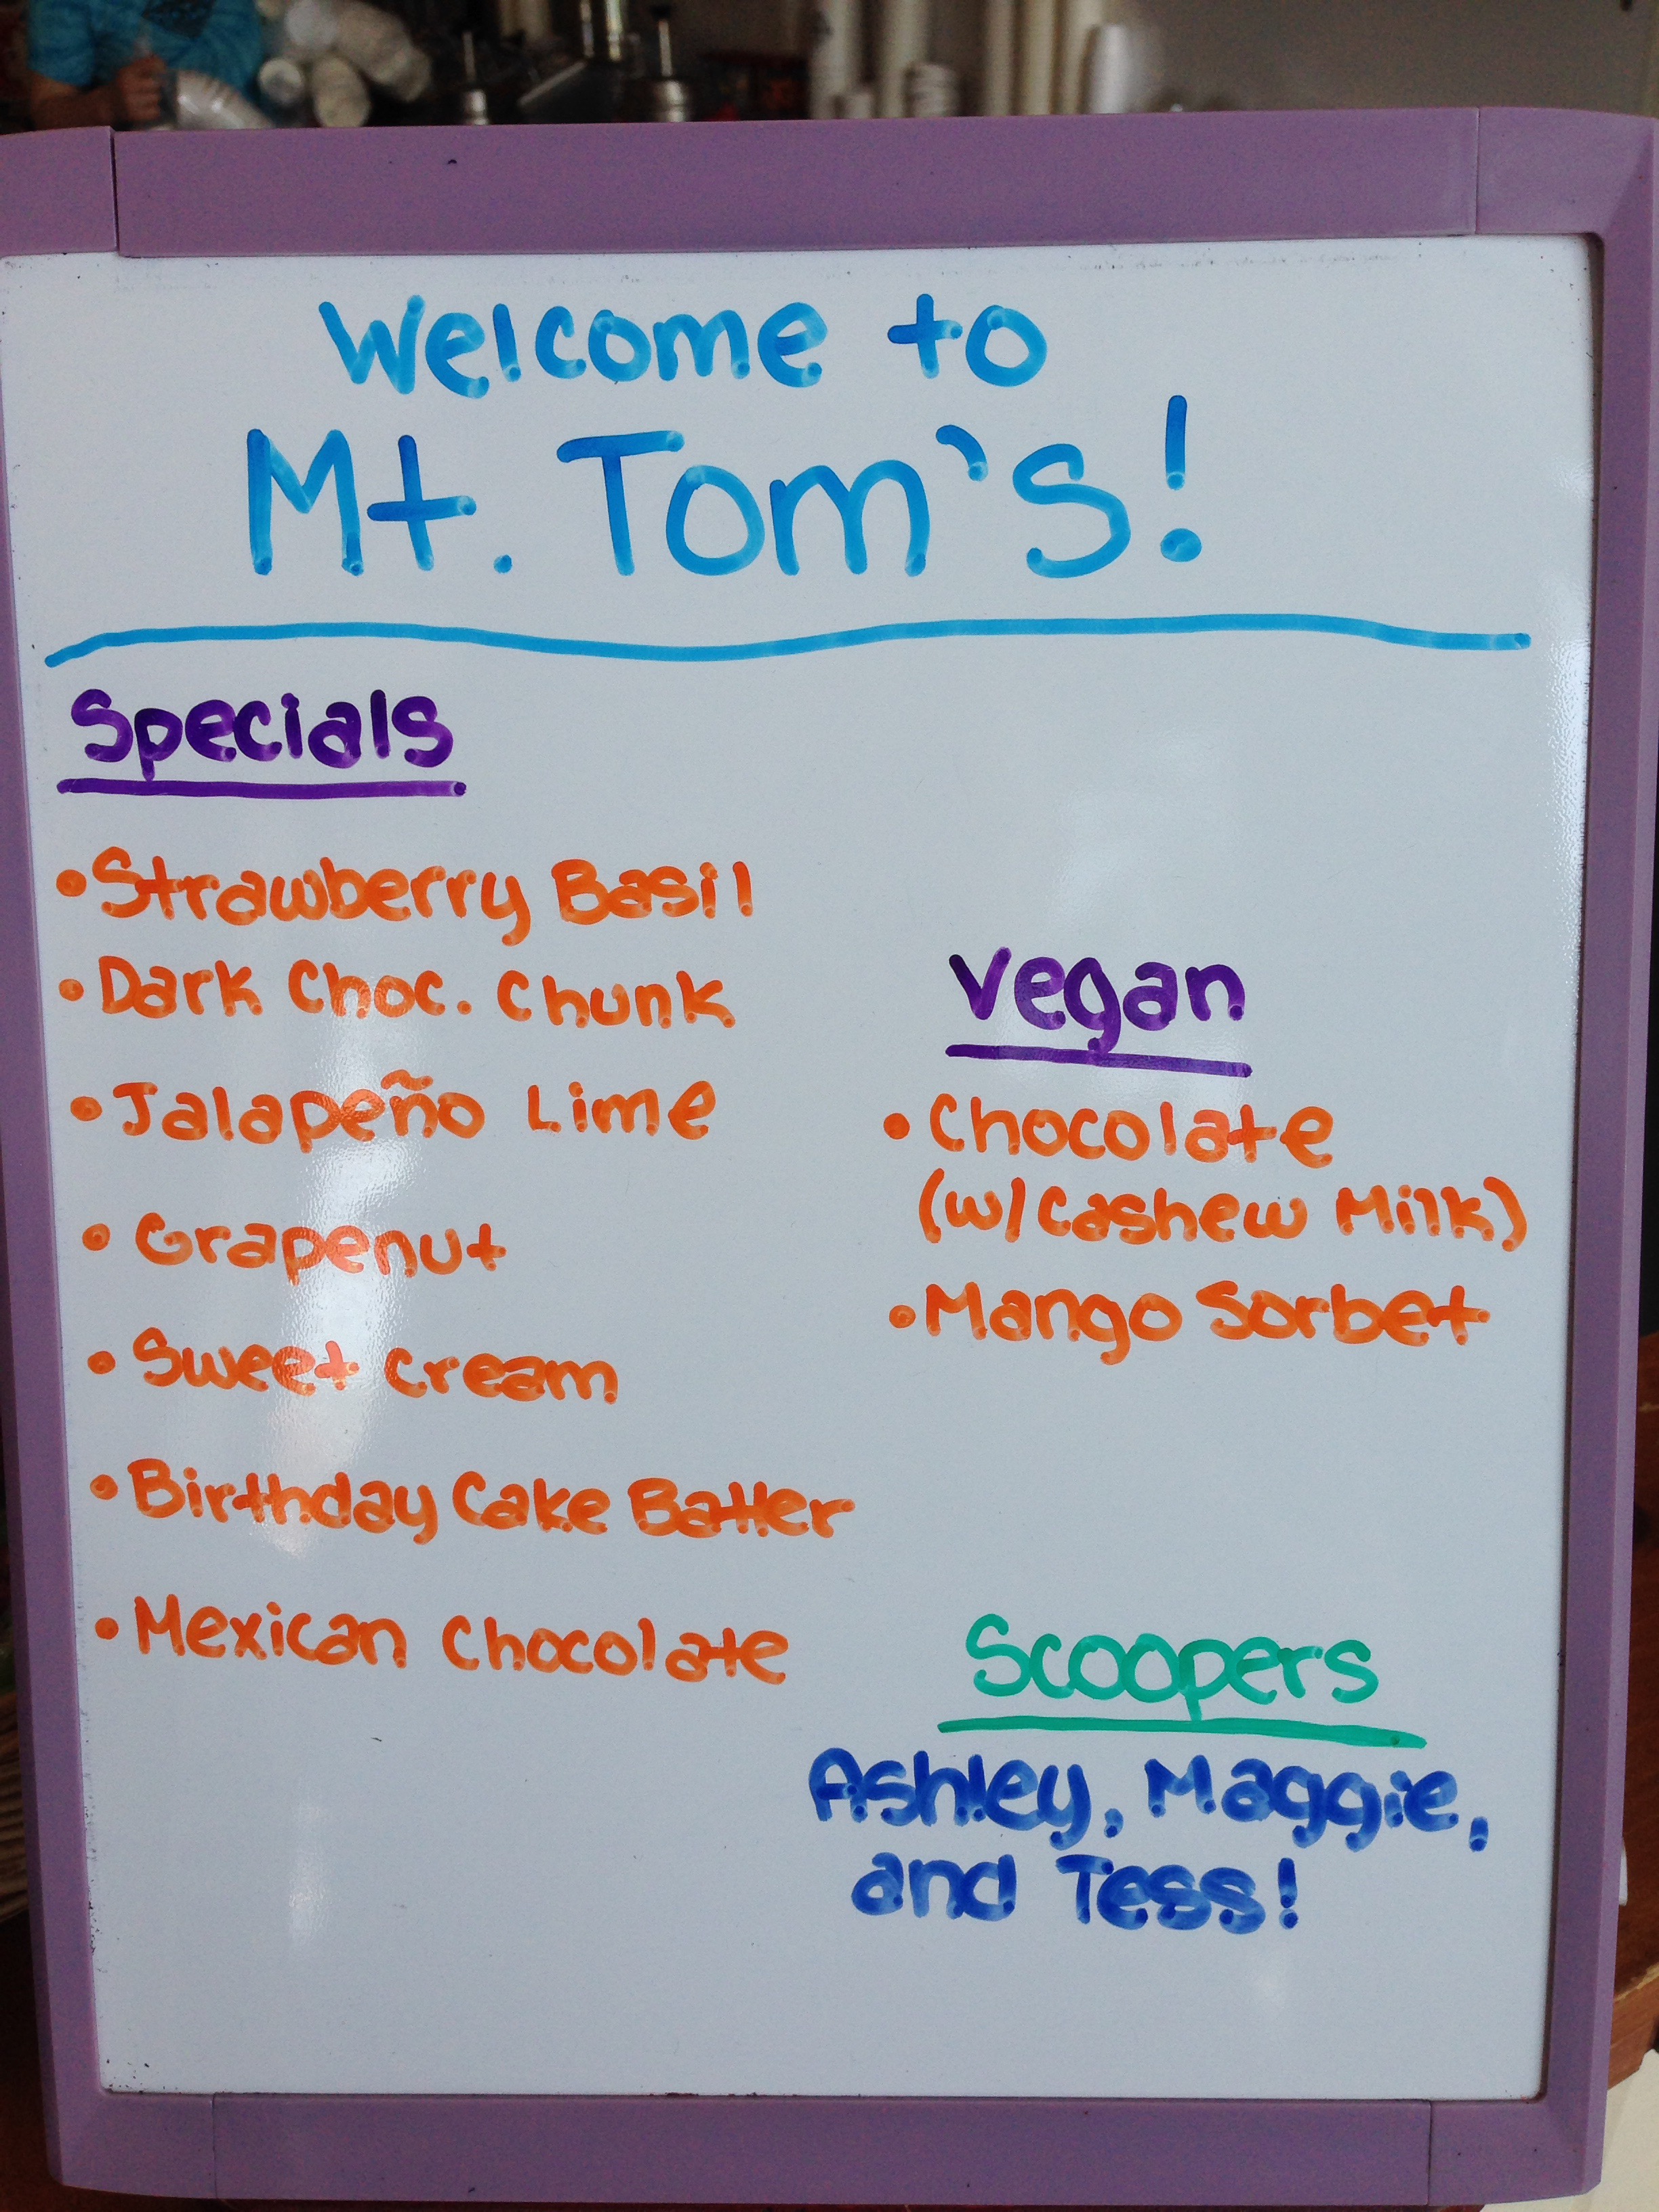 Welcome to
Mt. Tom's!
Specials
• Strawberry Basil
• Dark Choc. Chunk
• Jalapeño Lime
• Grapenut
• Sweet Cream
• Birthday Cake Batter
• Mexican Chocolate
Vegan
• Chocolate
(w/ Cashew Milk)
• Mango Sorbet
Scoopers
Ashley, Maggie,
and Tess!